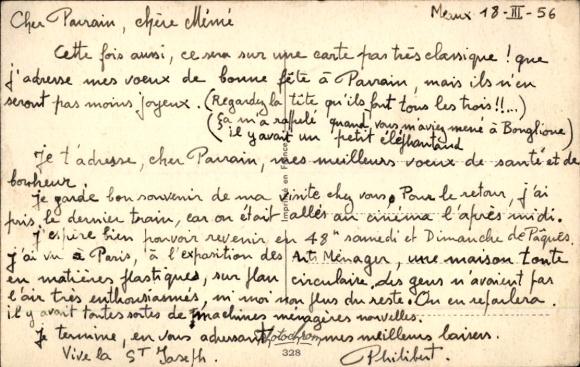 Meaux 18-III-56
Cher Parrain, chère Mémé
Cette fois aussi, ce sera sur une carte pas très classique ! que
j'adresse mes voeux de bonne fête à Parrain, mais ils n'en
seront pas moins joyeux. (Regardez la tête qu'ils font tous les trois!!...)
(ça m'a rappelé quand vous m'aviez mené à Bonglione)
il y avait un petit éléphanteau
Je t'adresse, cher Parrain, mes meilleurs voeux de santé et de
bonheur.
Je garde bon souvenir de ma visite chez vous. Pour le retour, j'ai
pris le dernier train, car on était allés au cinéma l'après midi.
J'espère bien pouvoir revenir en 48h samedi et Dimanche de Pâques.
J'ai vu à Paris, à l'exposition des Art Ménager, une maison toute
en matières plastiques, sur plan circulaire. Les gens n'avaient pas
l'air très enthousiasmés, ni moi non plus du reste. On en reparlera.
il y avait toutes sortes de machines ménagères nouvelles.
Je termine, en vous adressant mes meilleurs baisers.
Vive la ST Joseph.
Philibert.
Imprimé en France
Photochrom
328